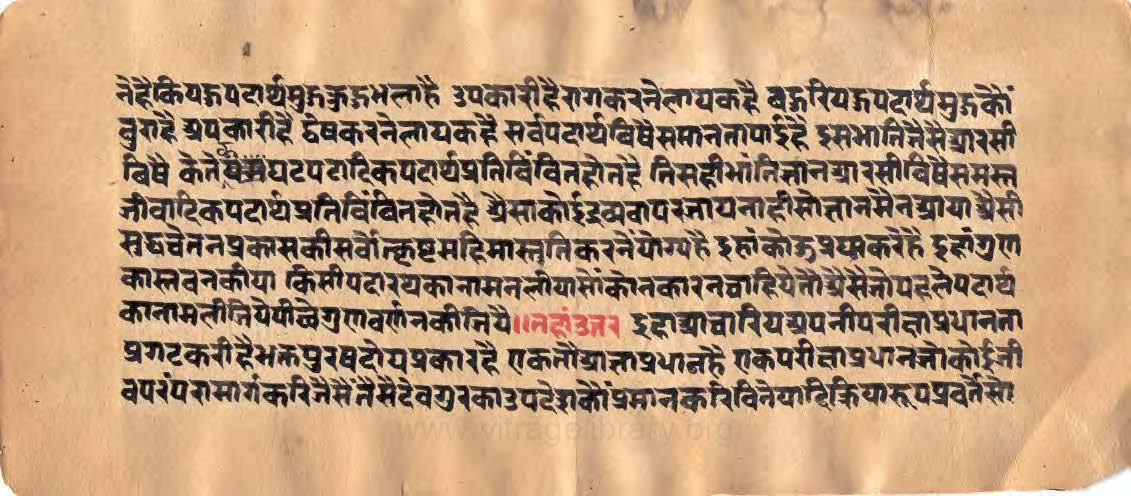 नेहैकियहपदार्थमुझकूंभलाहै उपकारीहैरागकरनेलायकहै बहुरियहपदार्थमुझकौं
बुराहै अपकारीहै द्वेषकरनेलायकहै सर्वपदार्थविषैसमानतापाईहै इसभांतिजैसेआरसी
विषै केते घटपटादिकपदार्थप्रतिबिंबितहोतहै तिसहीभांतिज्ञानआरसीविषैसमस्त
जीवादिकपदार्थप्रतिबिंबितहोतहै औसाकोईद्रव्यवापरजायनाहींसोज्ञानमैनआयाऔसी
सुद्धचैतनप्रकासकीसर्वोत्कृष्टमहिमास्तुतिकरनेयोग्यहै इहांकोऊप्रश्नकरैहै इहांगुण
कास्तवनकीया किसीपदारथकानामनलीयासोकोनकारनचाहियेतौऔसैजोपहलेपदार्थ
कानामलीजियेपीछेगुणवर्णनकीजियै॥तहांउत्तर इहाआचारियअपनीपरीक्षाप्रधानता
प्रगटकरीहैभक्तपुरषदोयप्रकारहै एकतौआज्ञाप्रधानहै एकपरीक्षाप्रधानजोकोईजी
वपरंपरामार्गकरिजैसैतैसैदेवगुरकाउपदेशकौंप्रमानकरिविनेयादिक्रियारूपप्रवर्तैसो
www.vitragelibrary.org